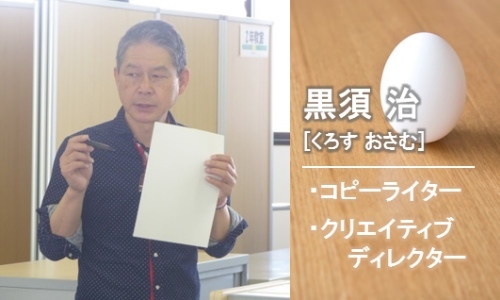 年教室
黒須 治
[くろす おさむ]
・コピーライター
・クリエイティブ
ディレクター